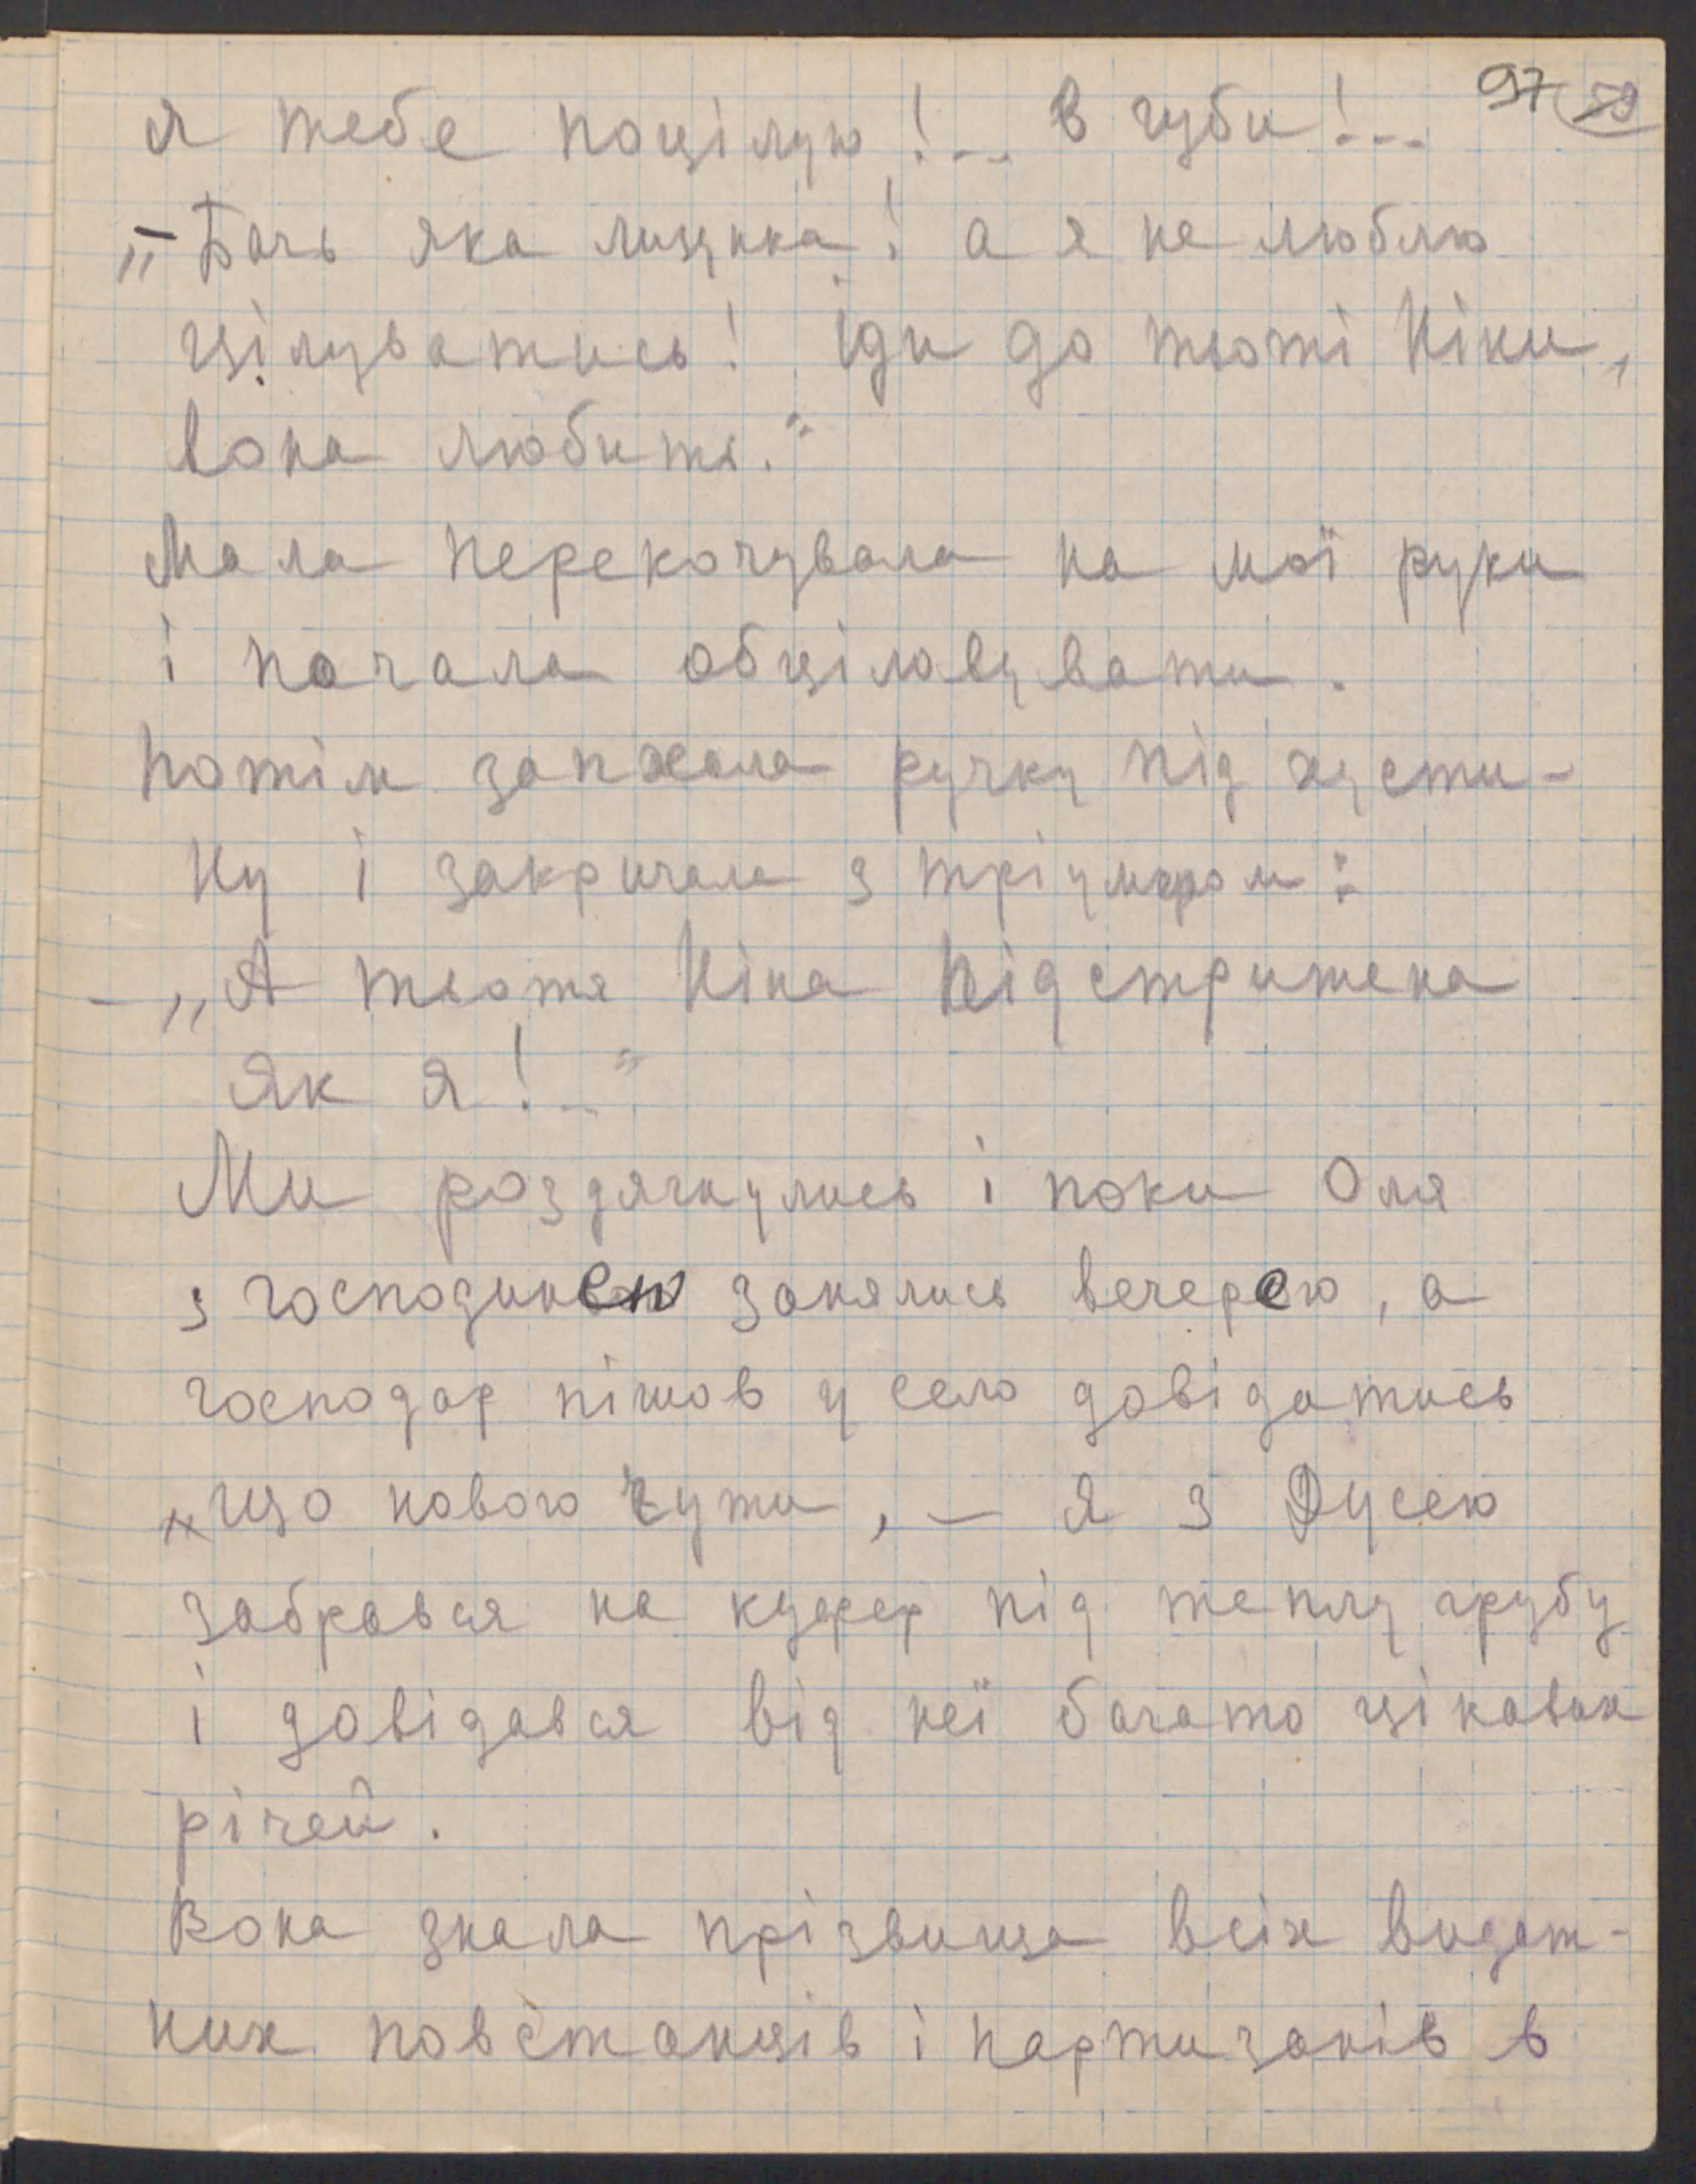 97 59
я тебе поцілую!... В губи!...
„Бачь яка лицика! а я не люблю
цілуватись! Іди до тьоті Ніни,
вона любить."
Мала перекочувала на мої руки
і почала обціловувати.
Потім запхала ручку під хусти-
ну і закричала з тріумфом:
- „А тьотя Ніна підстрижена
як я!.."
Ми роздягнулись і поки Оля
з господинею занялись вечерею, а
господар пішов у село довідатись
що нового чути, – я з Дусею
забрався на куфер під теплу грубу
і довідався від неї багато цікавих
річей.
Вона знала прізвища всіх видат-
них повстанців і партизанів в